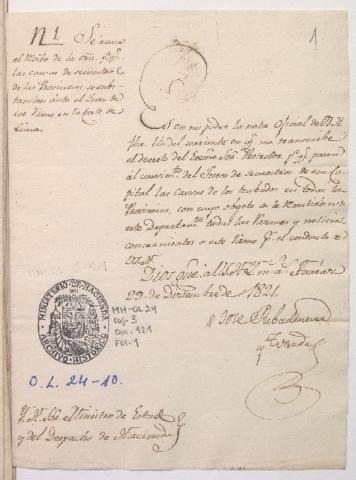 N.1 Se avisa
el recibo de la orn. pa. qe.
las causas de secuestros
de las Provincias se subs-
tancien ante el Juez de
este Ramo en la Corte de
Lima.
1
Es en mi poder la nota oficial de V.S.
fha. 14 del corriente en qe. me transcribe
el decreto del Exmo. Sor. Protector pa. qe. pasen
al conocimto. del Juez de Secuestros de esa Ca-
pital las causas de los
en todas las
Provincias, con cuyo objeto se le remitirán de
este Departamto. todas las razones y noticias
concernientes a este Ramo pr. el conducto de
V.S.
Dios gue. a V.S. m. a.
29 de Diciembre de 1821.
Jose Ribadeneira
y Texada
MINISTERIO DE HACIENDA
ARCHIVO HISTORICO
MH-OL 24
caj. 3
Doc. 121
Fol. 1
O.L. 24-10.
Y. H. Sor. Ministro de Estado
y del Despacho de Hacienda